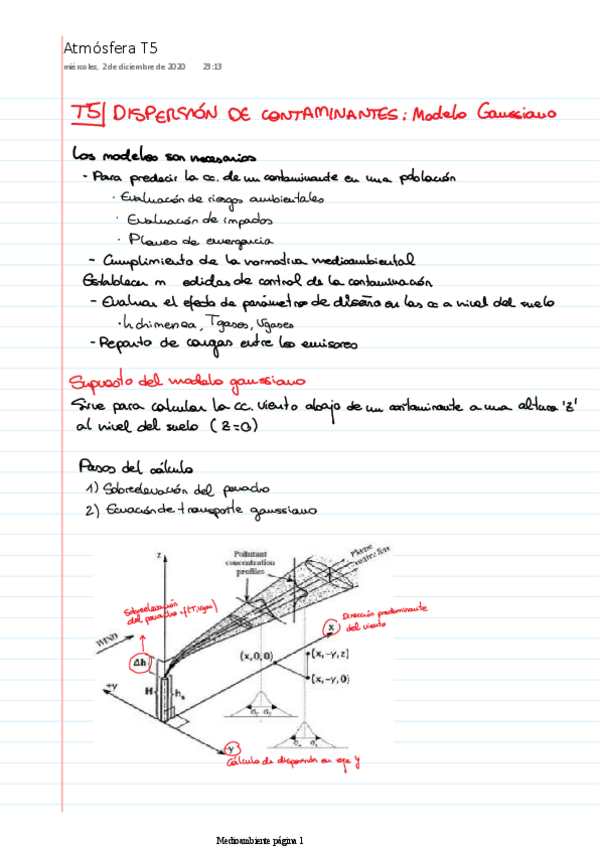 Atmósfera T5
miércoles, 2 de diciembre de 2020 23:13
T5| DISPERSIÓN DE CONTAMINANTES: Modelo Gaussiano
Los modelos son necesarios
- Para predecir la cc. de un contaminante en una población
· Evaluación de riesgos ambientales
· Evaluación de impactos
· Planes de emergencia
- Cumplimiento de la normativa medioambiental
Establecer m edidas de control de la contaminación
- Evaluar el efecto de parámetros de diseño en las cc a nivel del suelo
· h chimenea, Tgases, Vgases
- Reparto de cargas entre los emisores
Supuesto del modelo gaussiano
Sirve para calcular la cc. viento abajo de un contaminante a una altura 'z'
al nivel del suelo (z=0)
Pasos del cálculo
1) Sobreelevación del penacho
2) Ecuación de transporte gaussiano
z
Pollutant
concentration
profiles
Plume
centerline
Sobreelevación
del penacho
Dirección predominante
del viento
WIND
x
Δh
(x,0,0)
(x,-y,z)
(x,-y,0)
+y
H
hs
-y
Cálculo de dispersión en eje y
Medioambiente página 1